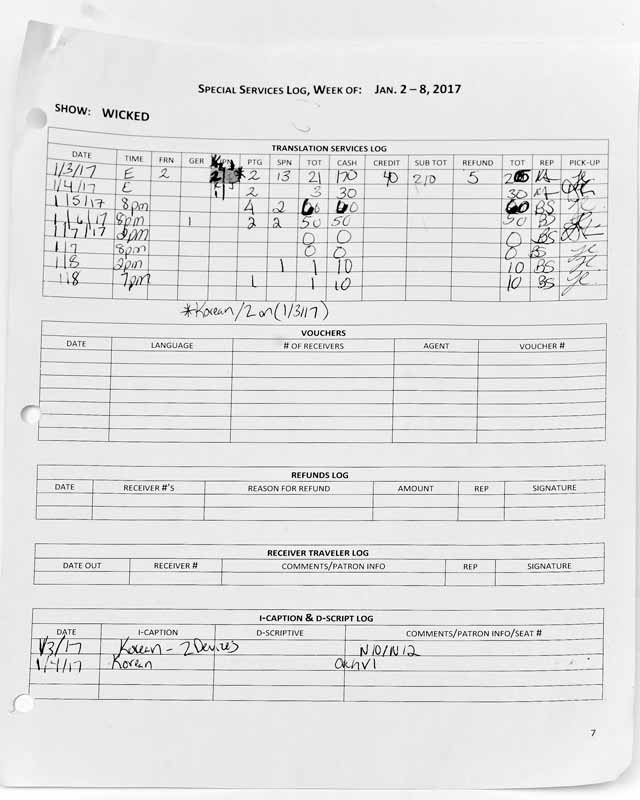 SPECIAL SERVICES LOG, WEEK OF: JAN. 2 – 8, 2017
SHOW: WICKED
TRANSLATION SERVICES LOG
DATE TIME FRN GER JPN PTG SPN TOT CASH CREDIT SUB TOT REFUND TOT REP PICK-UP
1/3/17 E 2 2 * 2 13 21 170 40 210 5
1/4/17 E 1 2 3 30 30
1/5/17 8pm 4 2 6 60 60 BS
1/6/17 8pm 1 2 2 50 50 50 BS
1/7/17 2pm 0 0 0 BS
1/7 8pm 0 0 0 BS
1/8 2pm 1 1 10 10 BS
1/8 7pm 1 1 10 10 BS
*Korean/2 on (1/3/17)
VOUCHERS
DATE LANGUAGE # OF RECEIVERS AGENT VOUCHER #
REFUNDS LOG
DATE RECEIVER #'S REASON FOR REFUND AMOUNT REP SIGNATURE
RECEIVER TRAVELER LOG
DATE OUT RECEIVER # COMMENTS/PATRON INFO REP SIGNATURE
I-CAPTION & D-SCRIPT LOG
DATE I-CAPTION D-SCRIPTIVE COMMENTS/PATRON INFO/SEAT #
1/3/17 Korean - 2 Devices N10/N12
1/4/17 Korean
7